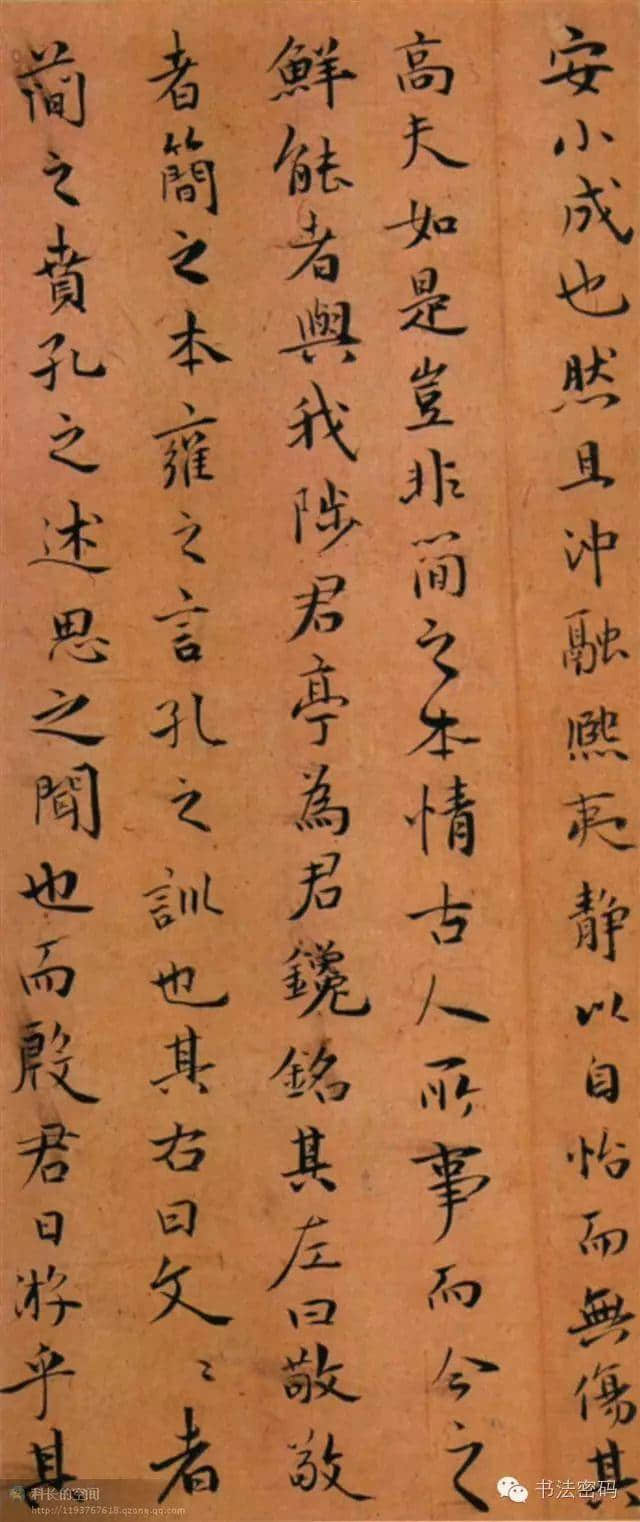 安小成也然且沖融熙夷静以自怡而無傷其
高夫如是豈非簡之本情古人所事而今之
鮮能者與我陟君亭為君鑱銘其左曰敬敬
者簡之本雍之言孔之訓也其右曰文〻者
簡之賁孔之述思之聞也而殷君日游乎其
书法密码
科长的空间
http://1193767618.qzone.qq.com